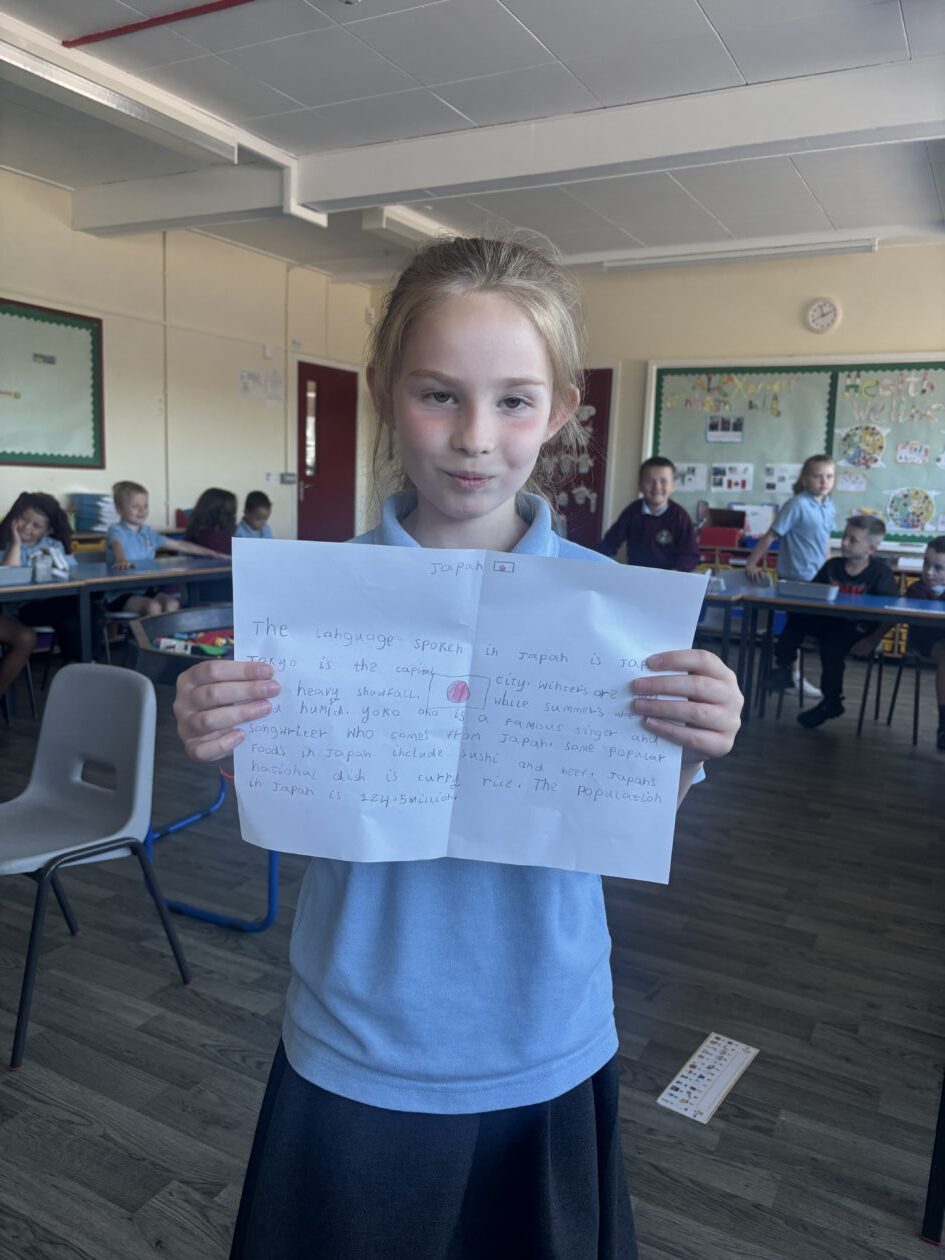 Japan
The language spoken in Japan is
Tokyo is the capital city. Winters are
heavy snowfall. while summers are
humid. Yoko ono is a famous singer and
songwriter who comes from Japan. some popular
foods in Japan include sushi and beef. Japans
national dish is curry rice. The population
in Japan is 124.5million.
Health